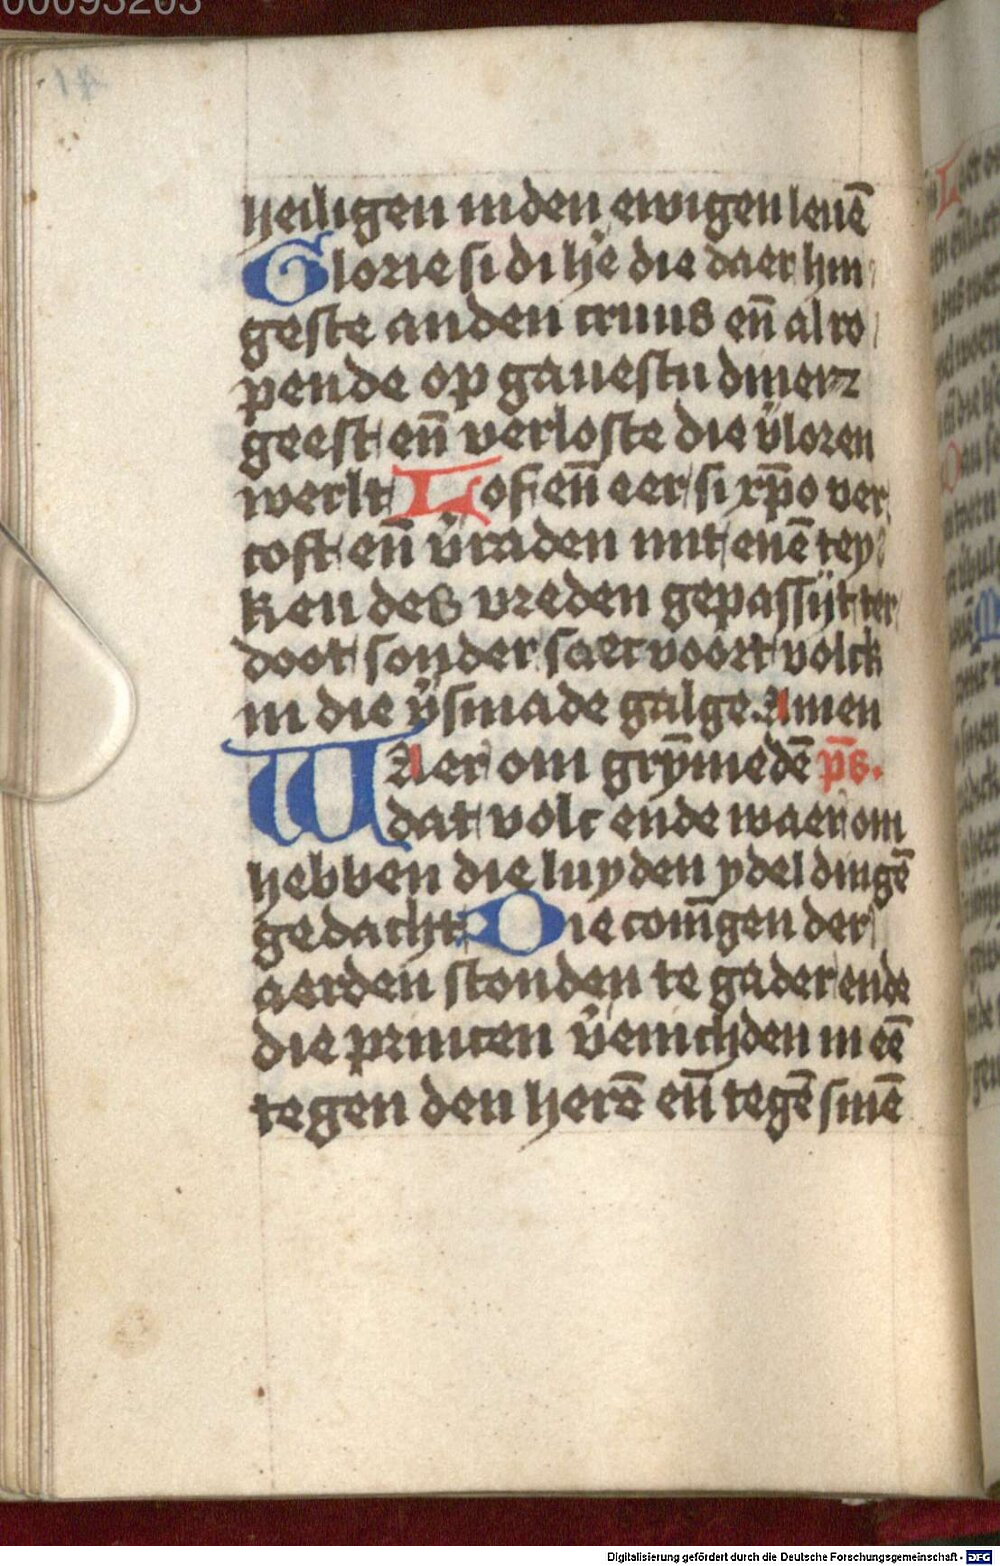 00095203
14
heiligen in den ewigen leuē
Glorie si di he᷑ die daer hin
geste an den cruus en̄ al ro
pende op gauestu dinen
geest en̄ verloste die v̾loren
werlt Lof en̄ eer si xp̄o ver
coft en̄ v̾raden mit enē tey
ken des vreden gepassijt ter
doot sonder saec voort volck
in die v̾smade galge. Amen
Waer om grȳmedē ps̄.
dat volc ende waer om
hebben die luyden ydel dingē
gedacht Die coni̅gen der
aerden stonden te gader ende
die princen v̾enichden in eē
tegen den herē en̄ tegē sinē
Digitalisierung gefördert durch die Deutsche Forschungsgemeinschaft - DFG